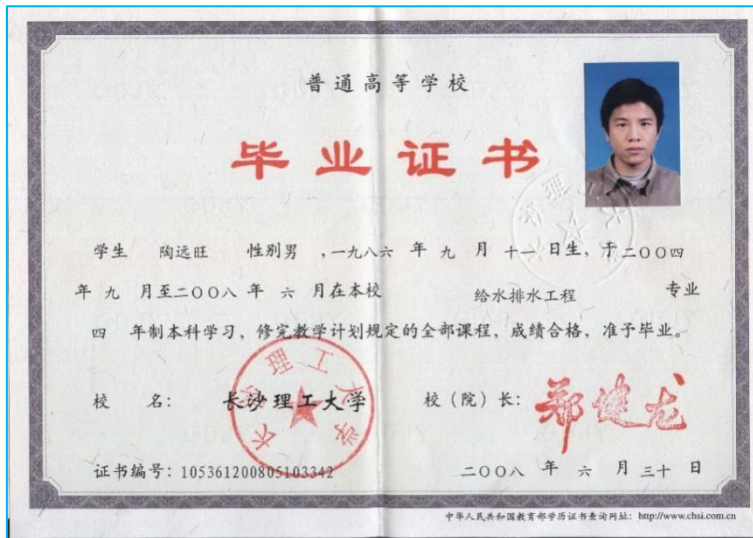 普通高等学校
毕业证书
学生 陶远旺 性别男 ,一九八六 年 九 月 十一 日生, 于二〇〇四
年 九 月至二〇〇八 年 六 月在本校 给水排水工程 专业
四 年制本科学习, 修完教学计划规定的全部课程, 成绩合格, 准予毕业。
校 名: 长沙理工大学 校(院)长: 郑健龙
长沙理工大学
证书编号: 105361200805103342 二〇〇八 年 六 月 三十 日
中华人民共和国教育部学历证书查询网址: http://www.chsi.com.cn